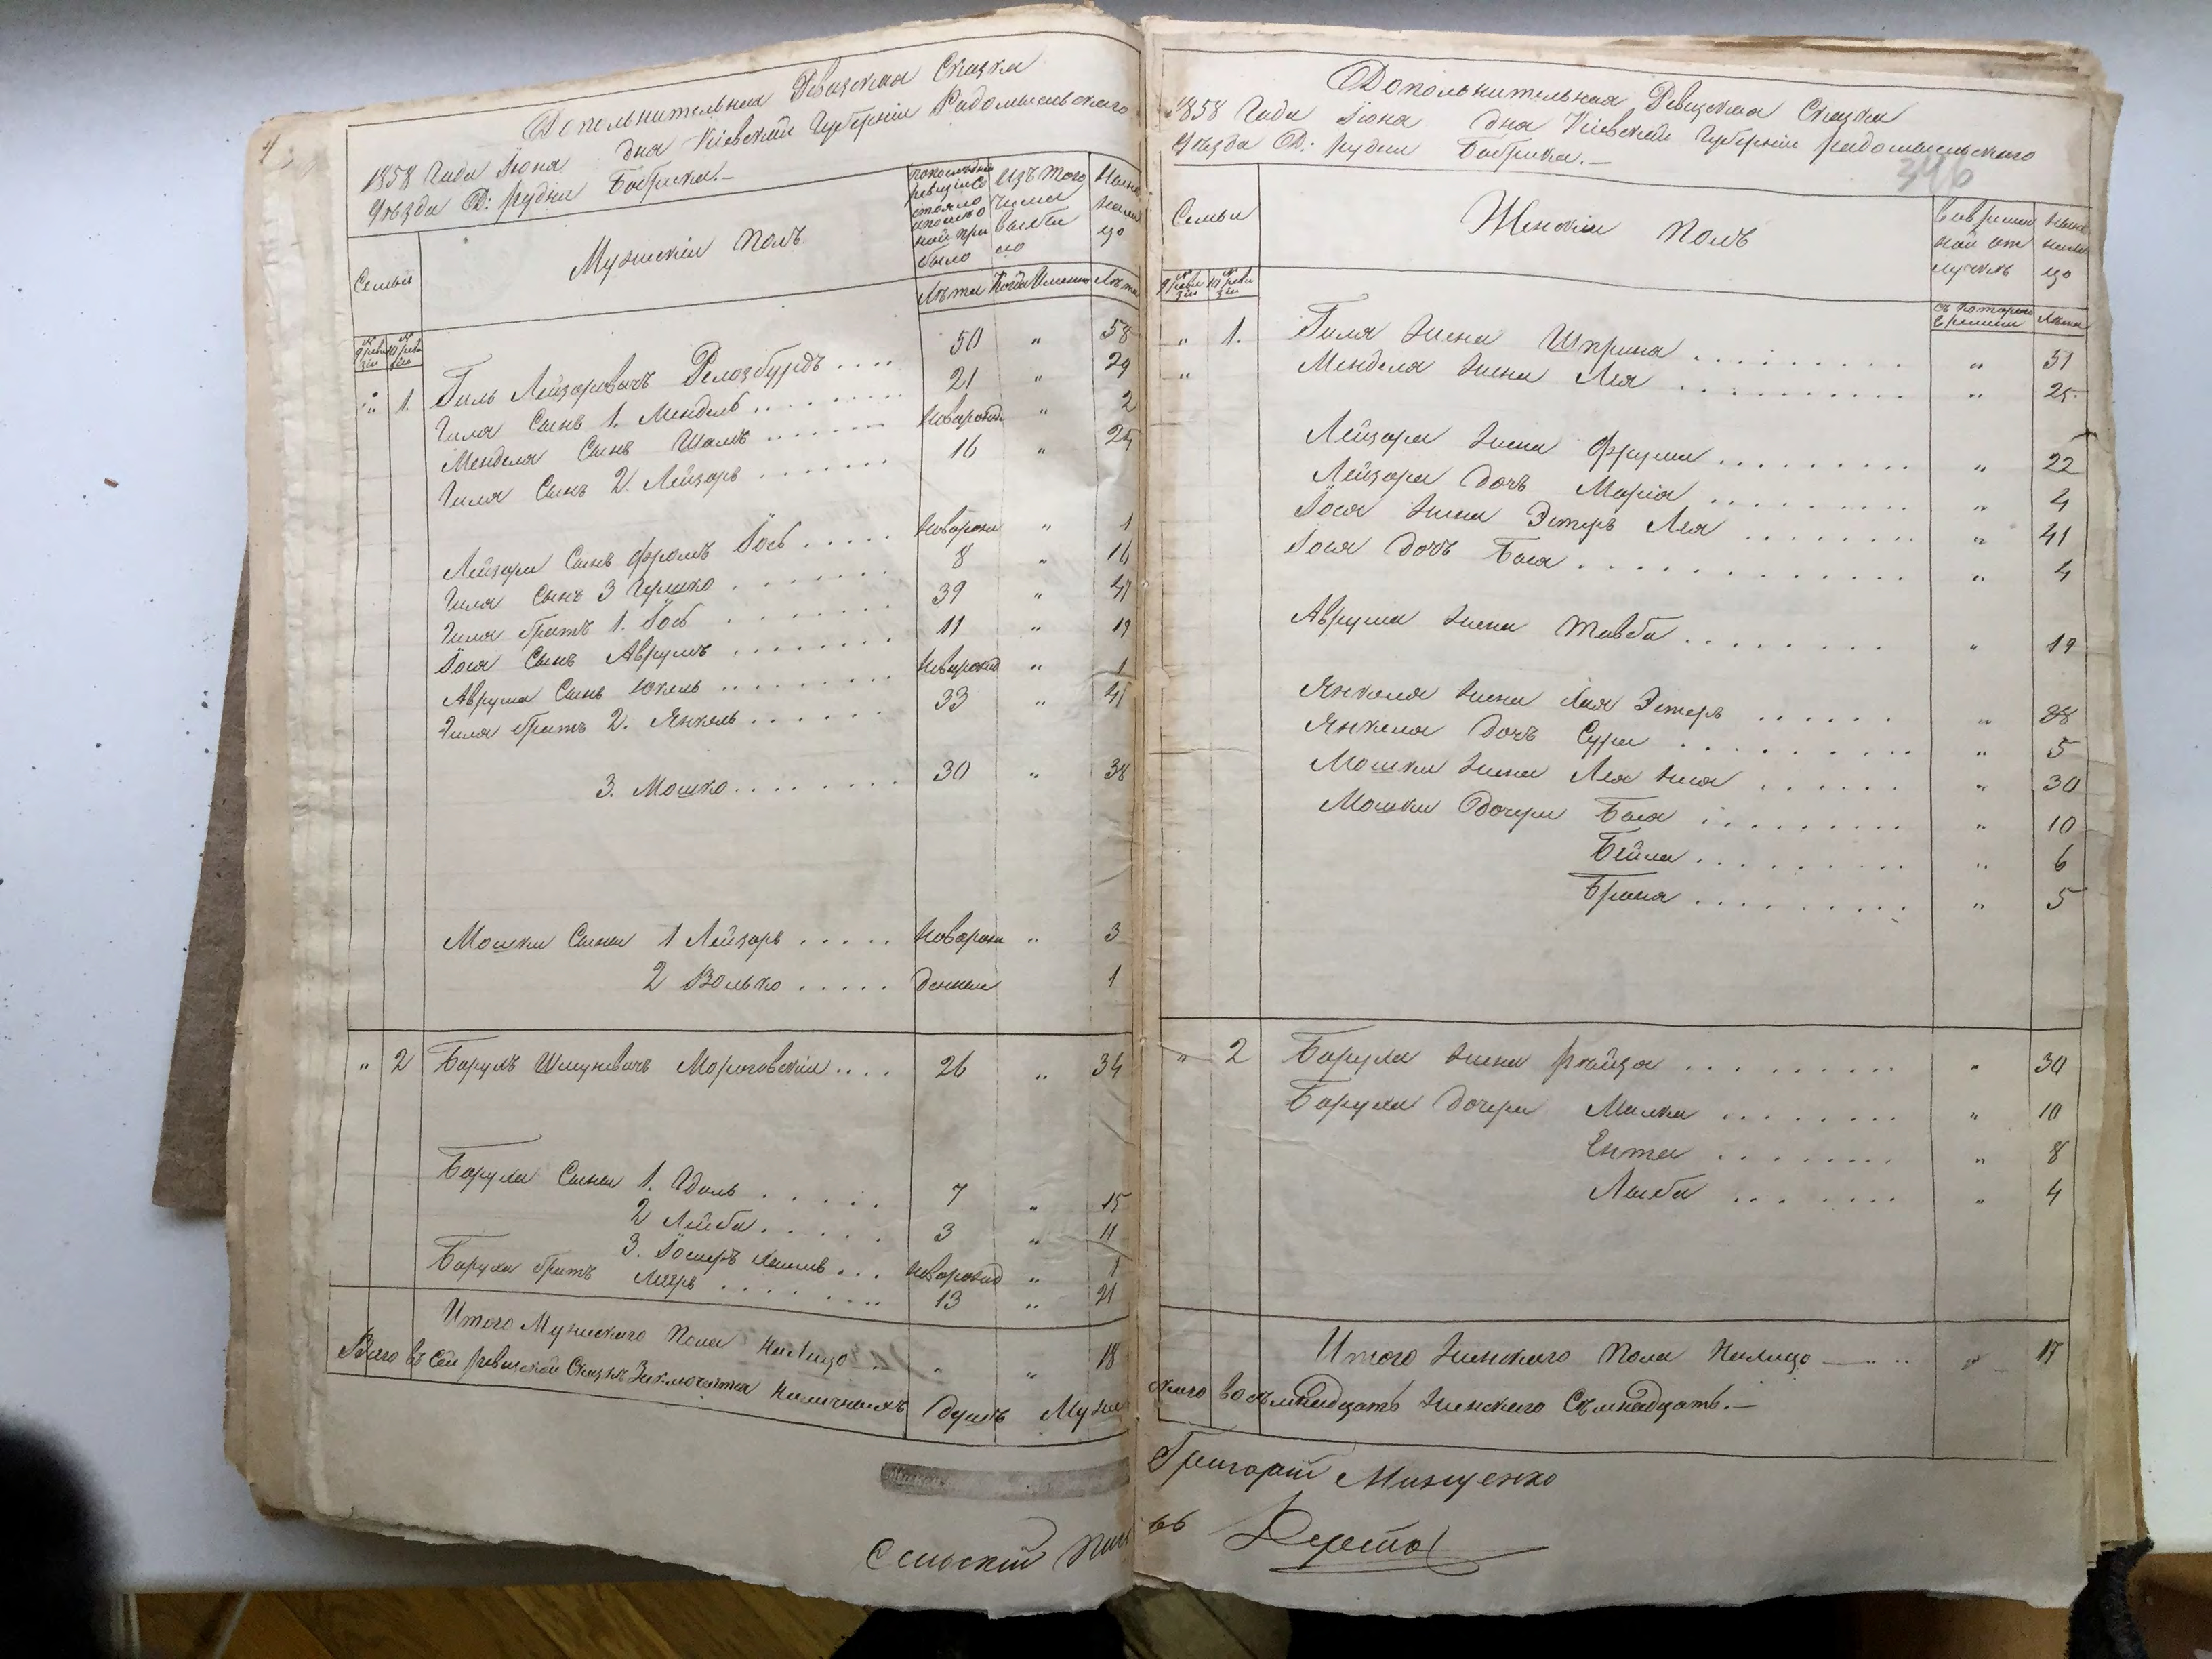 Дополнительная Ревизская Сказка
1858 Года Iюня дня Кіевской Губерніи Радомысльскаго
Уѣзда Д: Рудни Бобрика.—
Семьи
Мужескій Полъ
по последней ревизіи состояло и после оной прибыло
Изъ того числа выбыло
Ныне на лицо
№ 9 реви зіи
№ 10 реви зіи
Лѣта
Когда Именно
Лѣта
" 1. Гиль Лейзоровичъ .... 50 " 58
Гиля Сынъ 1. Мендель ........ 21 " 29
Менделя Сынъ Шлема ...... Новорожд. " 2
Гиля Сынъ 2. Лейзоръ ....... 16 " 24
Лейзора Сынъ Фроимъ Iось ..... Новорожд " 1
Гиля Сынъ 3 Гершко ....... 8 " 16
Гиля братъ 1. Iось ....... 39 " 47
Iося Сынъ Аврумъ ....... 11 " 19
Аврума Сынъ Юкель ........ Новорожд " 1
Гиля братъ 2. Янкель ...... 33 " 41
3. Мошко........ 30 " 38
Мошки Сыны 1 Лейзоръ ..... Новорож " 3
2 Волько ..... денные 1
" 2 Барухъ Шмулевичъ Мороговскій .... 26 " 34
Баруха Сыны 1. Удаль ..... 7 " 15
2 Лейба ..... 3 " 11
3. Iосифъ Хаимъ ... Новорожд " 1
Баруха братъ Мееръ ........ 13 " 21
Итого Мужескаго Пола На Лицо " " 18
Всего въ Сей Ревизской Сказкѣ Заключается Наличныхъ Душъ Муже
Сельскій Пис
Дополнительная Ревизская Сказка
1858 Года Iюня дня Кіевской Губерніи Радомысльскаго
Уѣзда Д: Рудни Бобрика.—
396
Семьи
Женскій Полъ
Во временной отлучкѣ
Ныне на лицо
№ 9 реви зіи
№ 10 реви зіи
Съ котораго времени
Лѣта
" 1. Гиля жена Шпринца ......... " 51
" Менделя жена Лея .......... " 25
Лейзора жена Фрума ......... " 22
Лейзора дочь Марія ......... " 4
Iося жена Эстеръ Лея ........ " 41
Iося дочь Бася ............. " 4
Аврума жена Тавба ........ " 19
Янкеля жена Хая Эстеръ ...... " 38
Янкеля дочь Сура ......... " 5
Мошки жена Лея ...... " 30
Мошки Дочери Бася ......... " 10
Бейла ......... " 6
Брана ......... " 5
" 2 Баруха жена Рейза ......... " 30
Баруха дочери Малка ........ " 10
Ента ........ " 8
Лыба ........ " 4
Итого женскаго Пола На лицо — .. " 17
скаго восѣмнадцать женскаго Сѣмнадцать.—
Григорій Мищенко